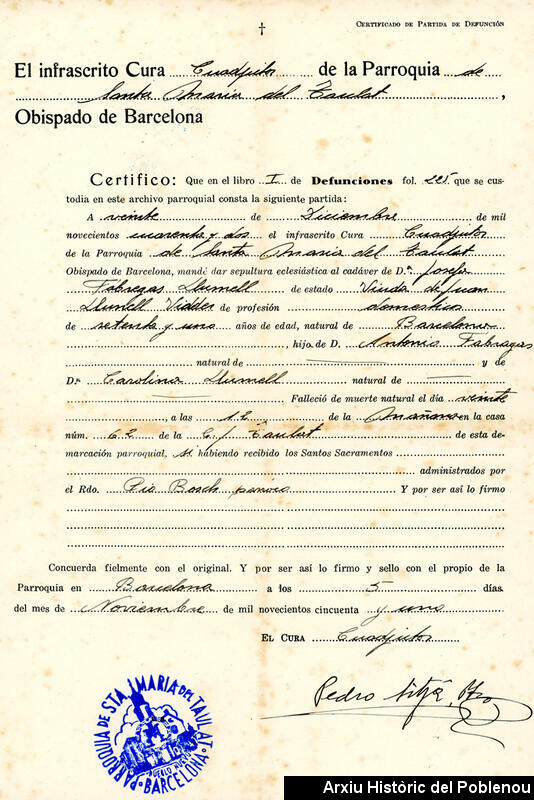 CERTIFICADO DE PARTIDA DE DEFUNCIÓN
El infrascrito Cura Cuadjutor de la Parroquia de
Santa Maria del Taulat,
Obispado de Barcelona
Certifico: Que en el libro I de Defunciones fol. 225 que se cus-
todia en este archivo parroquial consta la siguiente partida:
A veinte de Diciembre de mil
novecientos cuarenta y dos el infrascrito Cura Cuadjutor
de la Parroquia de Santa Maria del Taulat
Obispado de Barcelona, mandé dar sepultura eclesiástica al cadáver de D.ª Josefa
Fabregas Llumell de estado Viuda de Juan
Llumell de profesión domestica
de setenta y uno años de edad, natural de Barcelona
, hijo de D. Antonio Fabragas
natural de y de
D.ª Carolina Llumell natural de
Falleció de muerte natural el día veinte
, a las 12 de la Mañana en la casa
núm. 62 de la C/ Taulat de esta de-
marcación parroquial, si habiendo recibido los Santos Sacramentos
administrados por
el Rdo. Pio Bosch Y por ser así lo firmo
Concuerda fielmente con el original. Y por ser así lo firmo y sello con el propio de la
Parroquia en Barcelona a los 5 días.
del mes de Noviembre de mil novecientos cincuenta y uno
EL CURA Cuadjutor
Pedro
PARROQUIA DE STA. MARIA DEL TAULAT
PUEBLO NUEVO
BARCELONA
Arxiu Històric del Poblenou